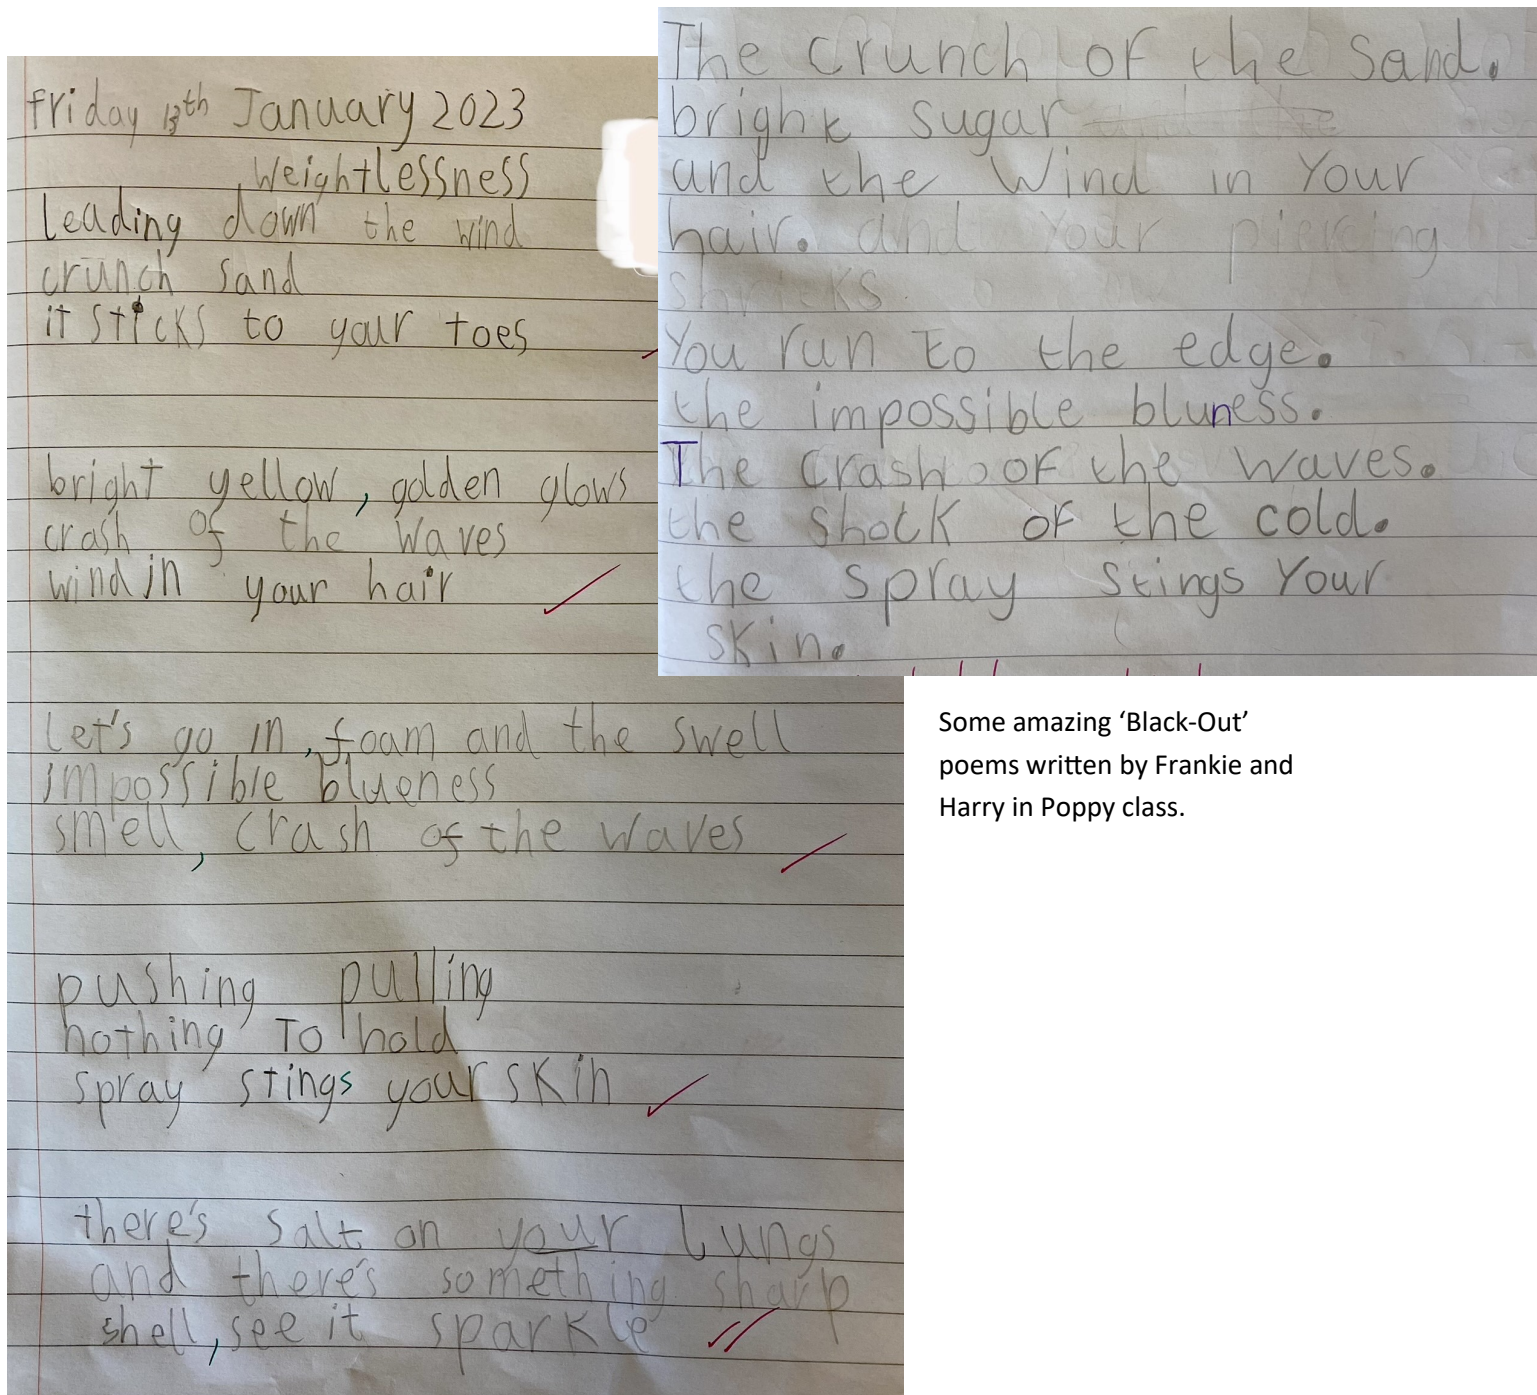 friday 13th January 2023
Weightlessness
leading down the wind
crunch sand
it sticks to your toes
bright yellow, golden glows
crash of the waves
wind in your hair
let's go in, foam and the swell
impossible blueness
smell, crash of the waves
pushing pulling
nothing To hold
spray stings your skin
there's salt on your Lungs
and there's something sharp
shell, see it sparkle
The crunch of the sand.
bright sugar
and the Wind in Your
hair. and your piercing
shrieks
You run to the edge.
the impossible bluness.
The crash of the waves.
the shock of the cold.
the spray stings Your
skin.
Some amazing ‘Black-Out’
poems written by Frankie and
Harry in Poppy class.